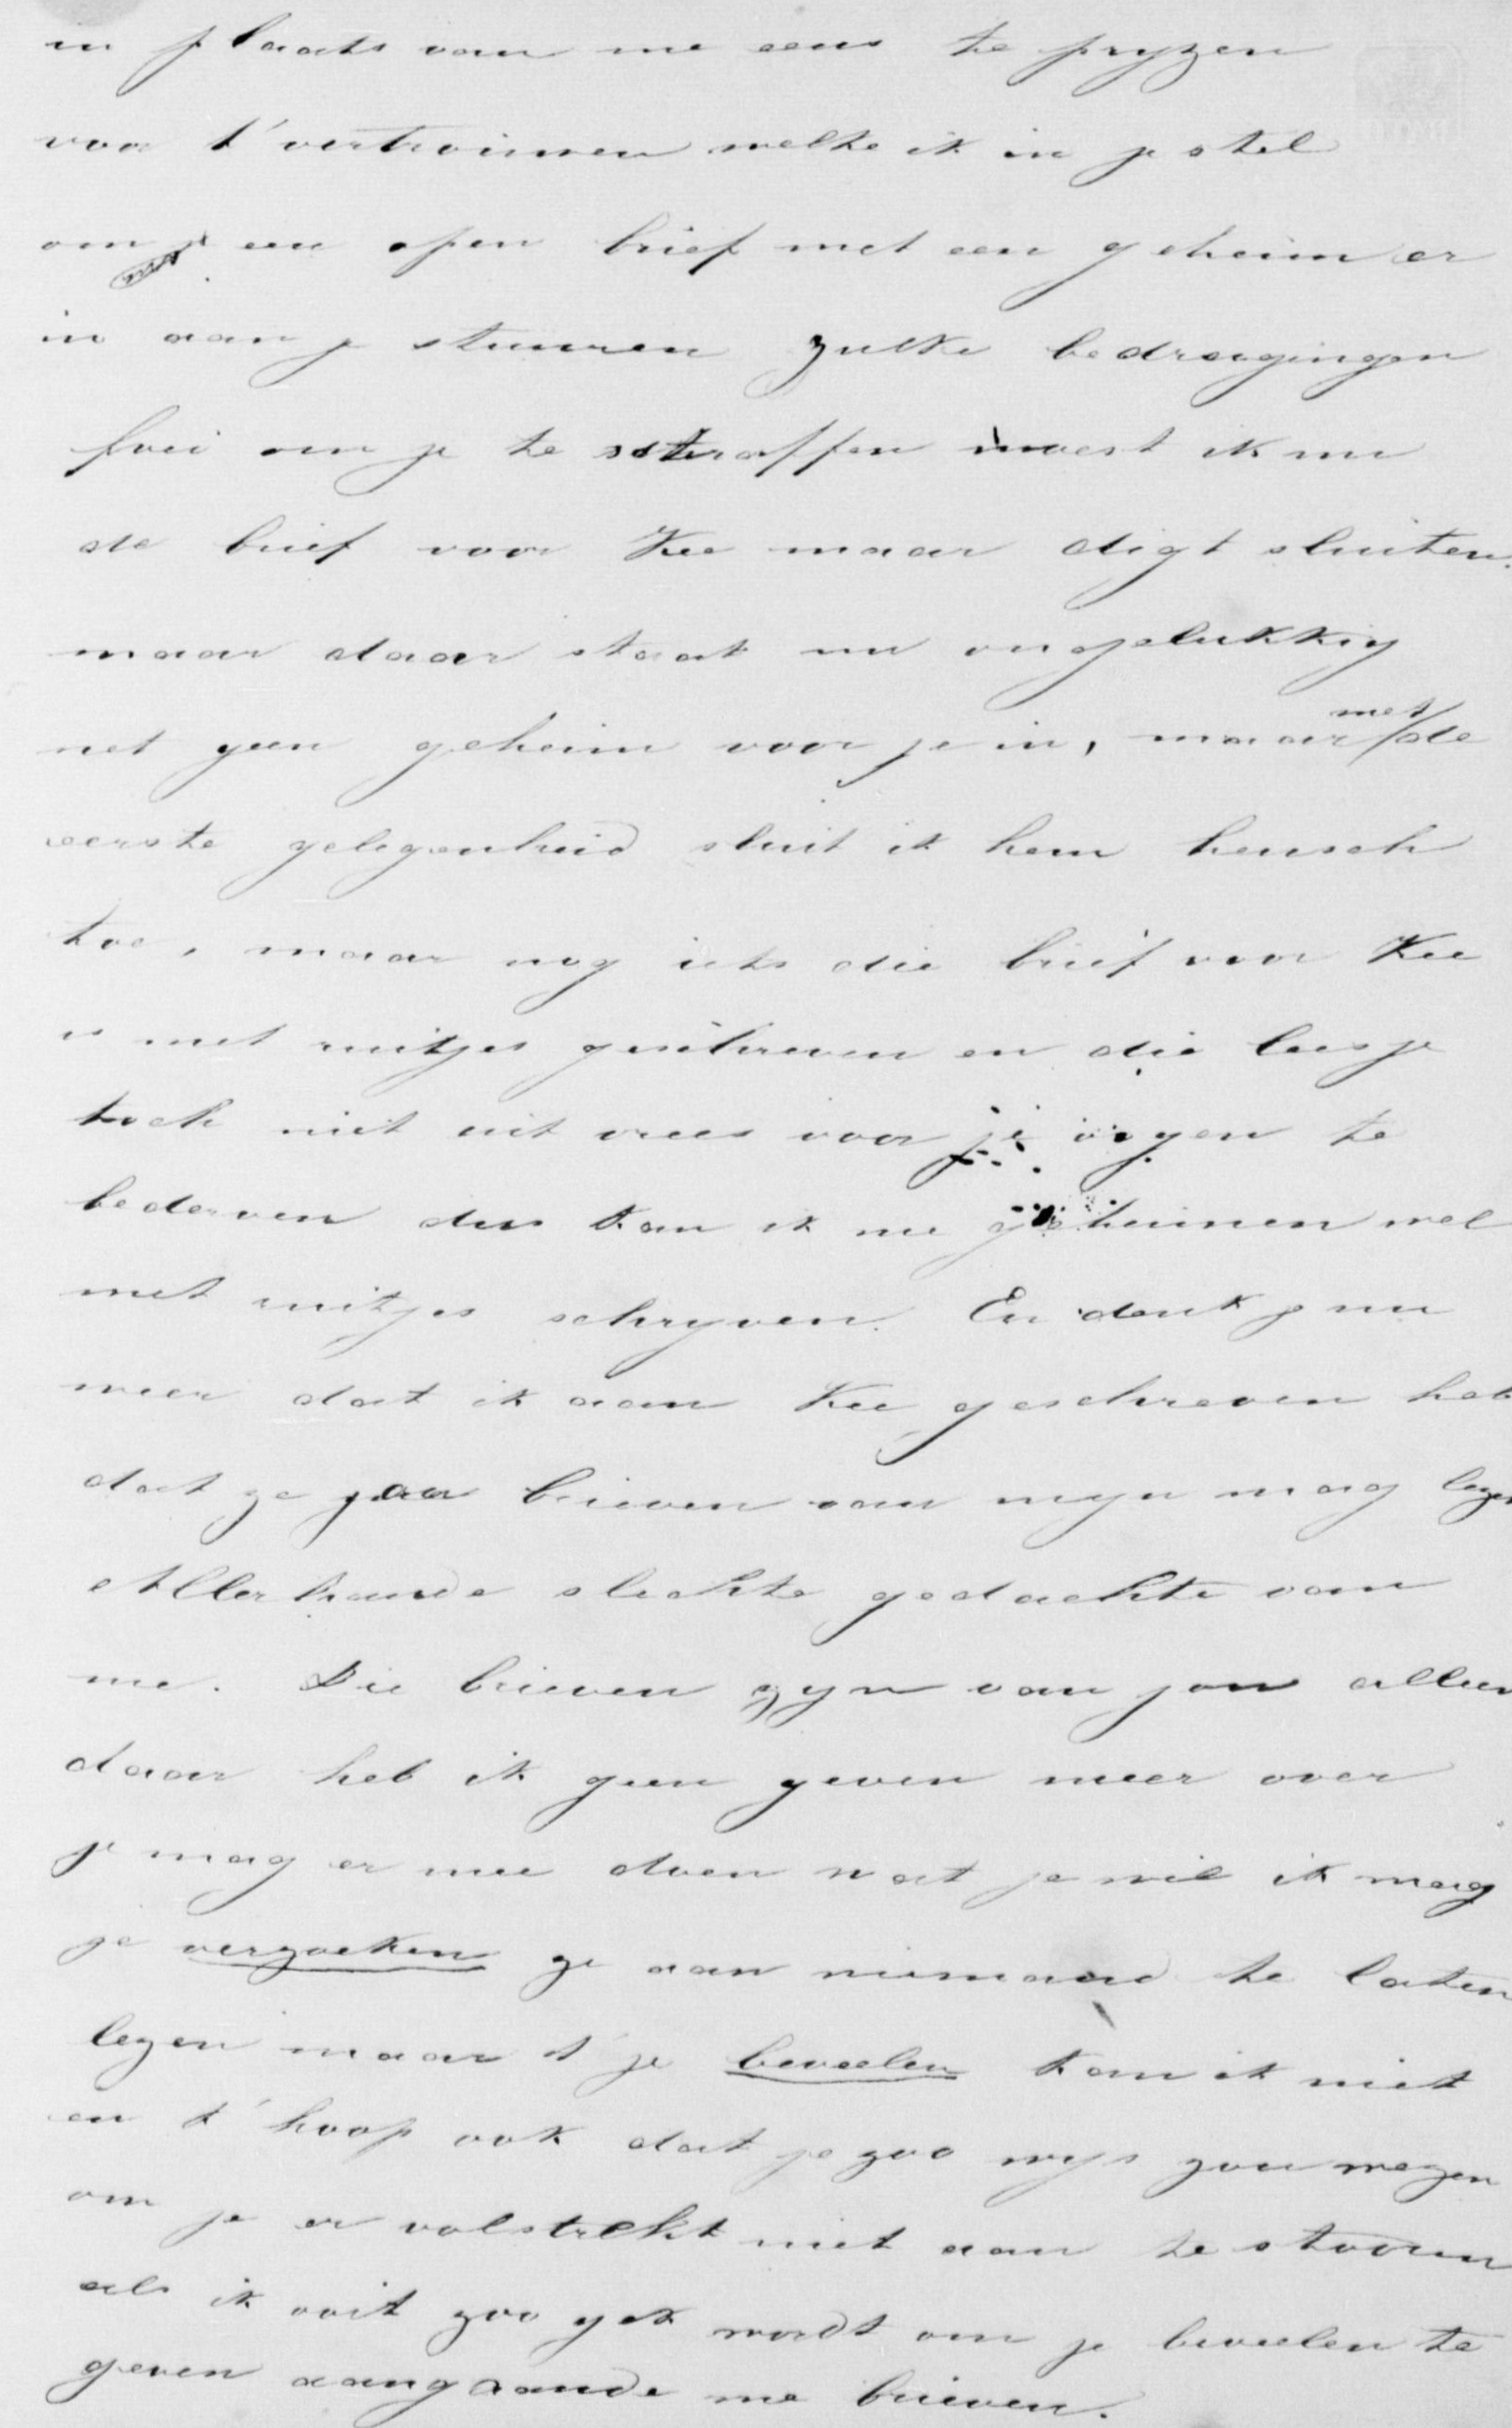 in plaats van me eens te pryzen
voor t' vertrouwen welke ik in je stel
om je een open brief met een geheim er
in aan je stuuren zulke bedragingen
foei om je te straffen moest ik nu
de brief voor Kee maar digt sluiten.
maar daar staat nu ongelukkig
net geen geheim voor je in, maar met de
eerste gelegenheid sluit ik hem heusch
toe, maar nog iets die brief voor Kee
is met ruitjes geschreven en die lees je
toch niet uit vrees voor je oogen te
bederven dus kan ik me geheimen wel
met ruitjes schryven. En denk je nu
weer dat ik aan Kee geschreven heb
dat ze jou brieven van myn mag lezen
Allerhande slechte gedachte van
me. Die brieven zyn van jou alleen
daar heb ik geen geven meer over
je mag er mee doen wat je wil ik mag
je verzoeken ze aan niemand te laten
lezen maar t' je beveelen kan ik niet
en t' hoop ook dat je zoo wys zou wezen
om je er volstrekt niet aan te stooren
als ik ooit zoo gek wordt om je beveelen te
geven aangaande me brieven.